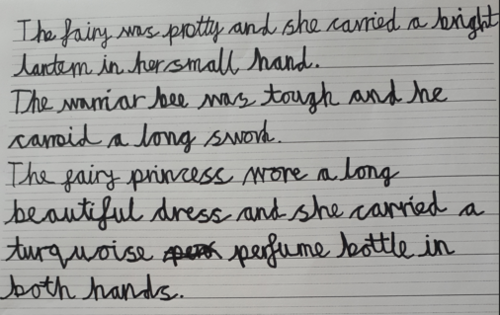 The fairy was protty and she carried a bright
lantern in her small hand.
The warriar bee was tough and he
carroid a long sword.
The fairy princess wore a long
beautiful dress and she carried a
turquoise perfume bottle in
both hands.